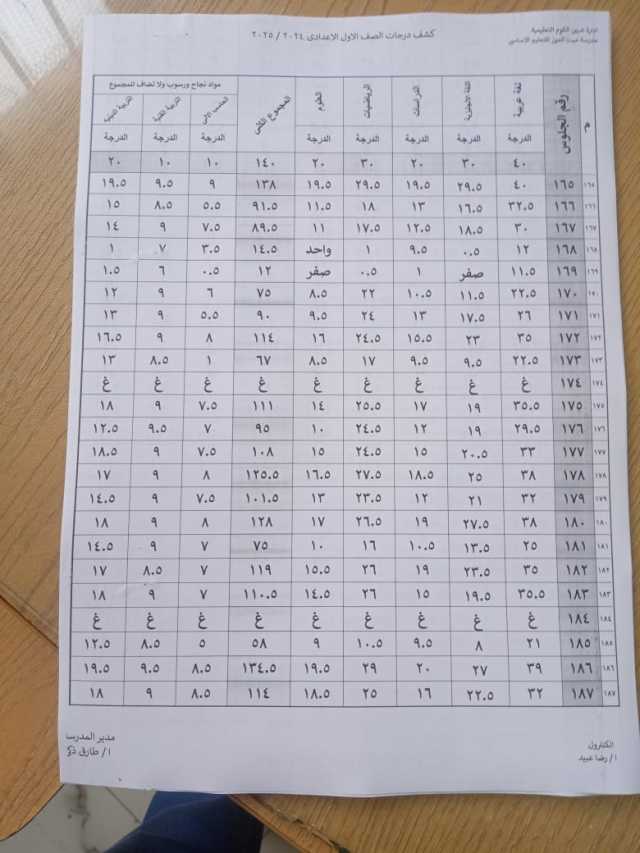 ادارة شبين الكوم التعليمية
مدرسة ميت الموز للتعليم الاساسى
كشف درجات الصف الاول الاعدادى ٢٠٢٤ / ٢٠٢٥
م رقم الجلوس لغة عربية اللغة الانجليزية الدراسات الرياضيات العلوم المجموع الكلى مواد نجاح ورسوب ولا تضاف للمجموع
الحاسب الالى التربية الفنية التربية الدينية
الدرجة الدرجة الدرجة الدرجة الدرجة الدرجة الدرجة الدرجة الدرجة
٤٠ ٣٠ ٢٠ ٣٠ ٢٠ ١٤٠ ١٠ ١٠ ٢٠
١٦٥ ١٦٥ ٤٠ ٢٩.٥ ١٩.٥ ٢٩.٥ ١٩.٥ ١٣٨ ٩ ٩.٥ ١٩.٥
١٦٦ ١٦٦ ٣٢.٥ ١٦.٥ ١٣ ١٨ ١١.٥ ٩١.٥ ٥.٥ ٨.٥ ١٥
١٦٧ ١٦٧ ٣٠ ١٨.٥ ١٢.٥ ١٧.٥ ١١ ٨٩.٥ ٧.٥ ٩ ١٤
١٦٨ ١٦٨ ١٢ ٠.٥ ٩.٥ ١ واحد ١٤.٥ ٣.٥ ٧ ١
١٦٩ ١٦٩ ١١.٥ صفر ١ ٠.٥ صفر ١٢ ٠.٥ ٦ ١.٥
١٧٠ ١٧٠ ٢٢.٥ ١١.٥ ١٠.٥ ٢٢ ٨.٥ ٧٥ ٦ ٩ ١٢
١٧١ ١٧١ ٢٦ ١٧.٥ ١٣ ٢٤ ٩.٥ ٩٠ ٥.٥ ٩ ١٣
١٧٢ ١٧٢ ٣٥ ٢٣ ١٥.٥ ٢٤.٥ ١٦ ١١٤ ٨ ٩ ١٦.٥
١٧٣ ١٧٣ ٢٢.٥ ٩.٥ ٩.٥ ١٧ ٨.٥ ٦٧ ١ ٨.٥ ١٣
١٧٤ ١٧٤ غ غ غ غ غ غ غ غ غ
١٧٥ ١٧٥ ٣٥.٥ ١٩ ١٧ ٢٥.٥ ١٤ ١١١ ٧.٥ ٩ ١٨
١٧٦ ١٧٦ ٢٩.٥ ١٩ ١٢ ٢٤.٥ ١٠ ٩٥ ٧ ٩.٥ ١٢.٥
١٧٧ ١٧٧ ٣٣ ٢٠.٥ ١٥ ٢٤.٥ ١٥ ١٠٨ ٧.٥ ٩ ١٨.٥
١٧٨ ١٧٨ ٣٨ ٢٥ ١٨.٥ ٢٧.٥ ١٦.٥ ١٢٥.٥ ٨ ٩ ١٧
١٧٩ ١٧٩ ٣٢ ٢١ ١٢ ٢٣.٥ ١٣ ١٠١.٥ ٧.٥ ٩ ١٤.٥
١٨٠ ١٨٠ ٣٨ ٢٧.٥ ١٩ ٢٦.٥ ١٧ ١٢٨ ٨ ٩ ١٨
١٨١ ١٨١ ٢٥ ١٣.٥ ١٠.٥ ١٦ ١٠ ٧٥ ٧ ٩ ١٤.٥
١٨٢ ١٨٢ ٣٥ ٢٣.٥ ١٩ ٢٦ ١٥.٥ ١١٩ ٧ ٨.٥ ١٧
١٨٣ ١٨٣ ٣٥.٥ ١٩.٥ ١٥ ٢٦ ١٤.٥ ١١٠.٥ ٧ ٩ ١٨
١٨٤ ١٨٤ غ غ غ غ غ غ غ غ غ
١٨٥ ١٨٥ ٢١ ٨ ٩.٥ ١٠.٥ ٩ ٥٨ ٥ ٨.٥ ١٢.٥
١٨٦ ١٨٦ ٣٩ ٢٧ ٢٠ ٢٩ ١٩.٥ ١٣٤.٥ ٨.٥ ٩.٥ ١٩.٥
١٨٧ ١٨٧ ٣٢ ٢٢.٥ ١٦ ٢٥ ١٨.٥ ١١٤ ٨.٥ ٩ ١٨
الكنترول
ا/ رضا عبيد
مدير المدرسا
ا/ طارق